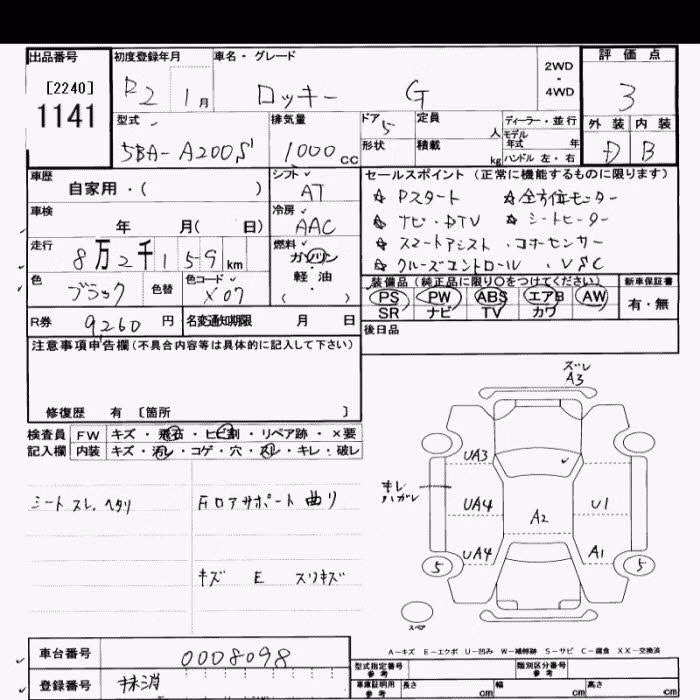 出品番号 初度登録年月 車名・グレード 2WD・4WD 評価点
[2240]
1141
R2 1月 ロッキー G 3
型式 排気量 ドア 5 定員 人 ディーラー・並行 外装 内装
5BA-A200S 1000cc 形状 積載 kg モデル年式 年 ハンドル 左・右 D B
車歴 自家用・( ) シフト AT セールスポイント(正常に機能するものに限ります)
☆ Pスタート ☆ 全方位モニター
車検 年 月( 日) 冷房 AAC
☆ ナビ・DTV ☆ シートヒーター
走行 8万2千159km 燃料 ガソリン・軽油・( )
☆ スマートアシスト・コーナーセンサー
☆ クルーズコントロール・VSC
色 ブラック 色替 色コード X07
装備品(純正品に限り○をつけてください) 新車保証書
PS PW ABS エアB AW 有・無
SR ナビ TV カワ
R券 9260円 名変通知期限 月 日 後日品
注意事項申告欄(不具合内容等は具体的に記入して下さい)
修復歴 有 [箇所 ]
検査員記入欄 FW キズ・飛石・ヒビ割・リペア跡・×要
内装 キズ・汚レ・コゲ・穴・スレ・キレ・破レ
シートスレ、ヘタリ
Fロアサポート曲り
キズ E スリキズ
ズレ
A3
UA3
キレ
ハガレ
UA4 U1
A2
UA4 A1
5 5
スペア
A-キズ E-エクボ U-凹み W-補修跡 S-サビ C-腐食 XX-交換済
車台番号 0008098 型式指定番号 参考 類別区分番号 参考
登録番号 抹消 車庫証明用 参考 長さ cm 幅 cm 高さ cm